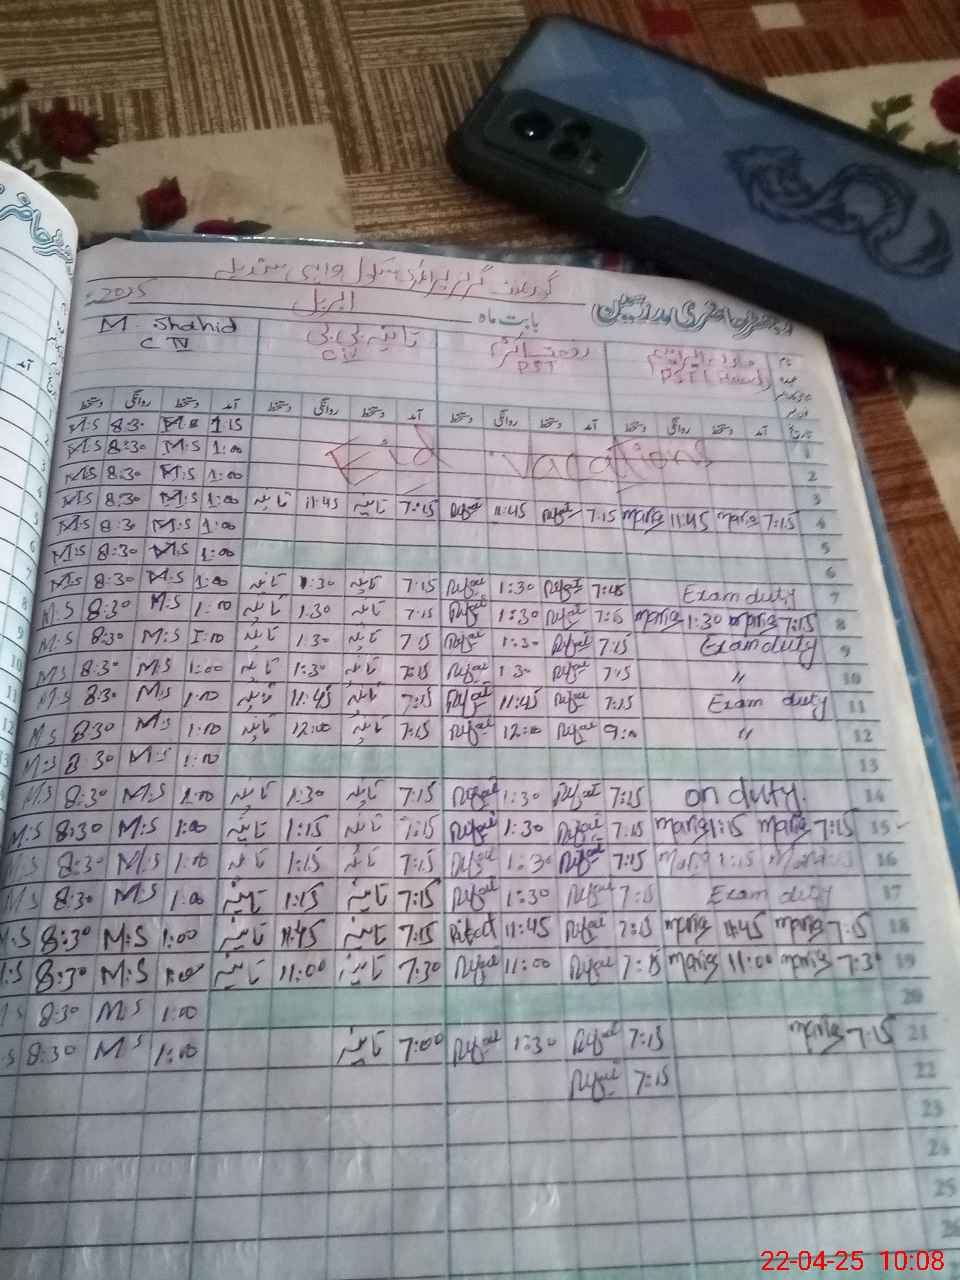 گورنمنٹ گرلز پرائمری سکول
2025 اپریل بابت ماہ رجسٹر حاضری مدرسین
M. Shahid ثانیہ بی بی نام
C IV CIV PST PST (Head) عہدہ
دستخط روانگی دستخط آمد دستخط روانگی دستخط آمد دستخط روانگی دستخط آمد دستخط روانگی دستخط آمد تاریخ
M.S 8:30 M.S 1:15 1
M.S 8:30 M.S 1:00 Eid vacations 2
M.S 8:30 M.S 1:00 3
M.S 8:30 M.S 1:00 ثانیہ 11:45 ثانیہ 7:15 Rifat 11:45 Rifat 7:15 Maria 11:45 Maria 7:15 4
M.S 8:30 M.S 1:00 5
M.S 8:30 M.S 1:00 6
M.S 8:30 M.S 1:00 ثانیہ 1:30 ثانیہ 7:15 Rifat 1:30 Rifat Exam duty 7
M.S 8:30 M.S 1:00 ثانیہ 1:30 ثانیہ 7:15 Rifat 1:30 Rifat 7:15 Maria 1:30 Maria 7:15 8
M.S 8:30 M.S 1:00 ثانیہ 1:30 ثانیہ 7:15 Rifat 1:30 Rifat 7:15 Exam duty 9
M.S 8:30 M.S 1:00 ثانیہ 1:30 ثانیہ 7:15 Rifat 1:30 Rifat 7:15 " 10
M.S 8:30 M.S 1:00 ثانیہ 11:45 ثانیہ 7:15 Rifat 11:45 Rifat 7:15 Exam duty 11
M.S 8:30 M.S 1:00 ثانیہ 12:00 ثانیہ 7:15 Rifat 12:00 Rifat 9:00 " 12
M.S 8:30 M.S 1:00 13
M.S 8:30 M.S 1:00 ثانیہ 1:30 ثانیہ 7:15 Rifat 1:30 Rifat 7:15 on duty. 14
M.S 8:30 M.S 1:00 ثانیہ 1:15 ثانیہ 7:15 Rifat 1:30 Rifat 7:15 Maria 1:15 Maria 7:15 15
M.S 8:30 M.S 1:00 ثانیہ 1:15 ثانیہ 7:15 Rifat 1:30 Rifat 7:15 Maria 1:15 Maria 16
M.S 8:30 M.S 1:00 ثانیہ 1:15 ثانیہ 7:15 Rifat 1:30 Rifat 7:15 Exam duty 17
M.S 8:30 M.S 1:00 ثانیہ 11:45 ثانیہ 7:15 Rifat 11:45 Rifat 7:15 Maria 11:45 Maria 7:15 18
M.S 8:30 M.S 1:00 ثانیہ 11:00 ثانیہ 7:30 Rifat 11:00 Rifat 7:15 Maria 11:00 Maria 7:30 19
M.S 8:30 M.S 1:00 20
M.S 8:30 M.S 1:00 ثانیہ 7:00 Rifat 1:30 Rifat 7:15 Maria 7:15 21
Rifat 7:15 22
23
24
25
26
22-04-25 10:08